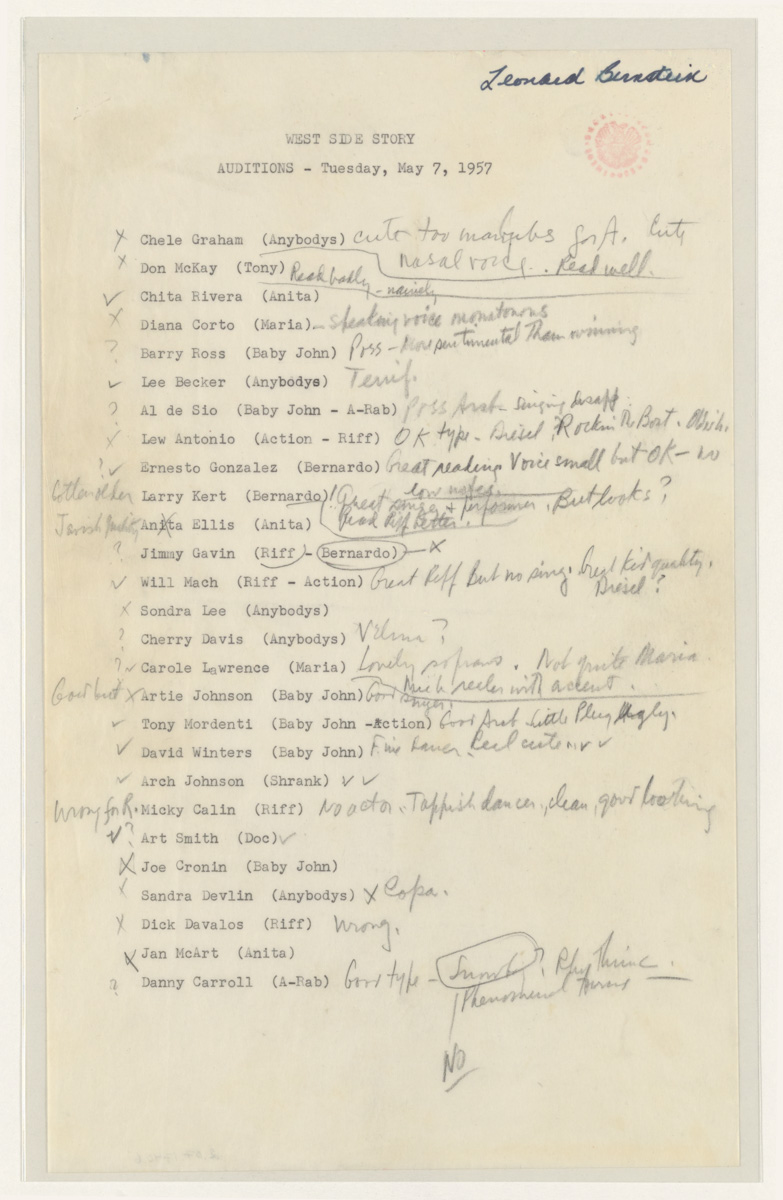 Leonard Bernstein
WEST SIDE STORY
AUDITIONS - Tuesday, May 7, 1957
X Chele Graham (Anybodys) cute too for A. Cute
nasal voice. Read well.
X Don McKay (Tony) Read badly - namely
✓ Chita Rivera (Anita)
X Diana Corto (Maria) - speaking voice monotonous
? Barry Ross (Baby John) Poss - More sentimental than winning
✓ Lee Becker (Anybodys) Terrif.
? Al de Sio (Baby John - A-Rab) Poss Arab - singing
X Lew Antonio (Action - Riff) OK type - Diesel? Rockin the Boat.
?✓ Ernesto Gonzalez (Bernardo) Great reading. Voice small but OK - no
low notes.
Larry Kert (Bernardo)! Great singer + performer. But looks?
Read Riff better.
X Anita Ellis (Anita)
? Jimmy Gavin (Riff - Bernardo) - X
✓ Will Mach (Riff - Action) Great Riff But no sing. Great kid quality.
Diesel?
X Sondra Lee (Anybodys)
? Cherry Davis (Anybodys) Velma?
?✓ Carole Lawrence (Maria) Lovely soprano. Not quite Maria.
Much realer with accent.
Good but X Artie Johnson (Baby John) Good singer.
✓ Tony Mordenti (Baby John -Action) Good Arab Little Plug Ugly.
✓ David Winters (Baby John) Fine dancer. Real cute ✓ ✓
✓ Arch Johnson (Shrank) ✓ ✓
Wrong for R. Micky Calin (Riff) No actor. Tappish dancer, clean, good looking
✓? Art Smith (Doc) ✓
X Joe Cronin (Baby John)
X Sandra Devlin (Anybodys) X Copa.
X Dick Davalos (Riff) Wrong.
X Jan McArt (Anita)
? Danny Carroll (A-Rab) Good type - Snowboy?
Phenomenal
No